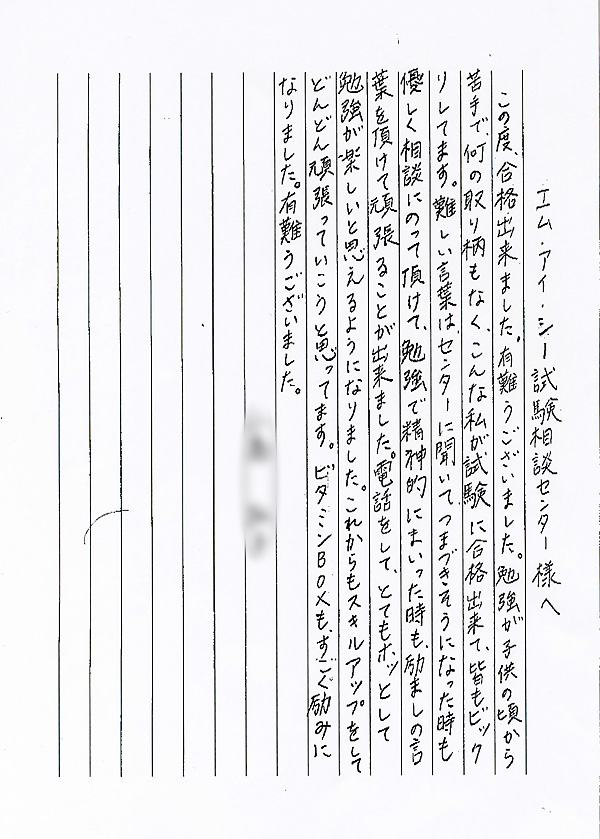 エム・アイ・シー試験相談センター様へ
この度、合格出来ました。有難うございました。勉強が子供の頃から
苦手で、何の取り柄もなく、こんな私が試験に合格出来て、皆もビック
リしてます。難しい言葉は、センターに聞いて、つまづきそうになった時も
優しく相談にのって頂けて、勉強で精神的にまいった時も、励ましの言
葉を頂けて頑張ることが出来ました。電話をして、とてもホッとして
勉強が楽しいと思えるようになりました。これからもスキルアップをして
どんどん頑張っていこうと思ってます。ビタミンBOXも、すごく励みに
なりました。有難うございました。